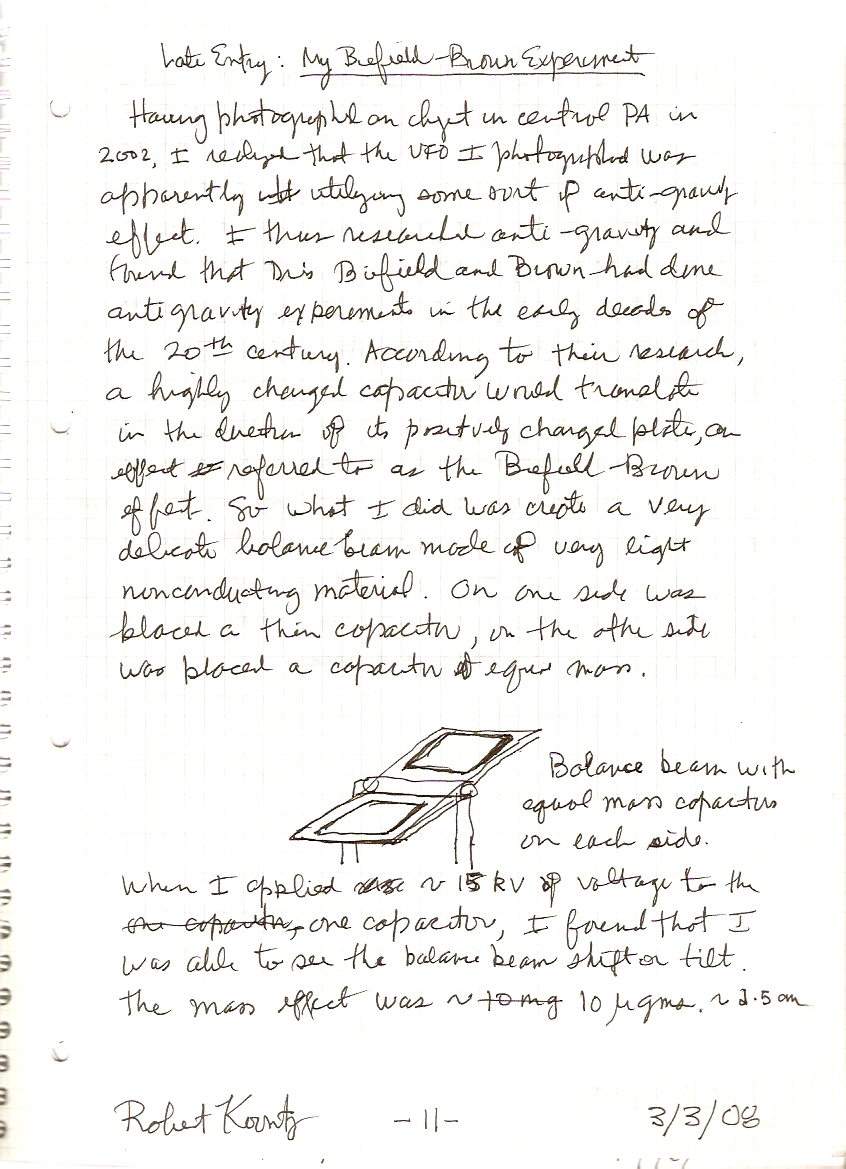 Late Entry: My Biefield-Brown Experiment
Having photographed an object in central PA in
2002, I realized that the UFO I photographed was
apparently utilizing some sort of anti-gravity
effect. I thus researched anti-gravity and
found that Drs Biefield and Brown had done
antigravity experiments in the early decades of
the 20th century. According to their research,
a highly charged capacitor would translate
in the direction of its positively charged plate, an
effect referred to as the Biefield-Brown
effect. So what I did was create a very
delicate balance beam made of very light
nonconducting material. On one side was
placed a thin capacitor, on the other side
was placed a capacitor of equal mass.
Balance beam with
equal mass capacitors
on each side.
When I applied ~ 15 KV of voltage to the
one capacitor, one capacitor, I found that I
was able to see the balance beam shift or tilt.
The mass effect was ~ 10 mg 10 μgms. ~
Robert Koontz
- 11 -
3/3/08